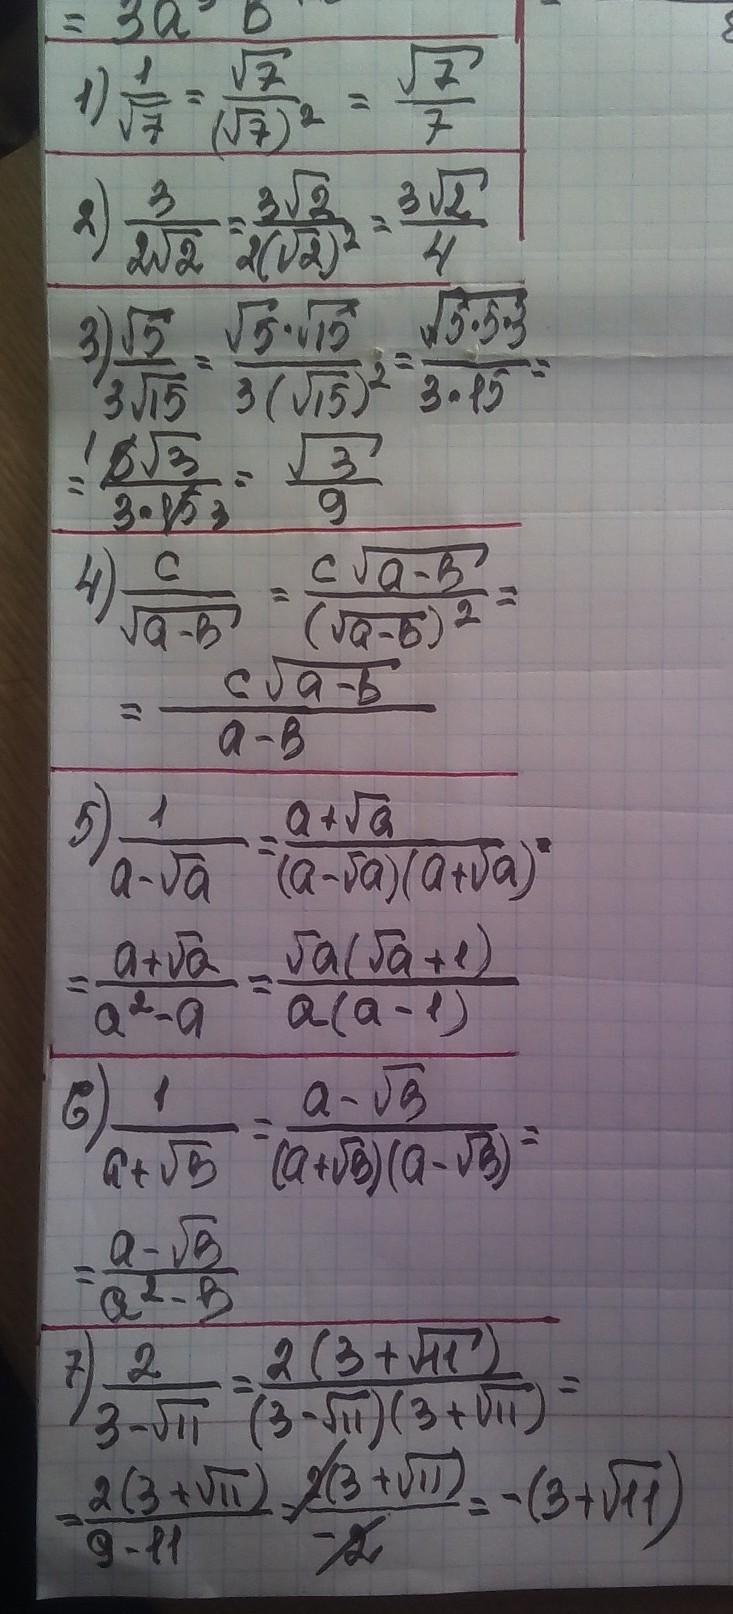 = 3a
1) 1/√7 = √7/(√7)² = √7/7
2) 3/2√2 = 3√2/2(√2)² = 3√2/4
3) √5/3√15 = √5·√15/3(√15)² = √5·5·3/3·15 =
= 5√3/3·15 = √3/9
4) c/√a-b = c√a-b/(√a-b)² =
= c√a-b/a-b
5) 1/a-√a = a+√a/(a-√a)(a+√a) =
= a+√a/a²-a = √a(√a+1)/a(a-1)
6) 1/a+√b = a-√b/(a+√b)(a-√b) =
= a-√b/a²-b
7) 2/3-√11 = 2(3+√11)/(3-√11)(3+√11) =
= 2(3+√11)/9-11 = 2(3+√11)/-2 = -(3+√11)